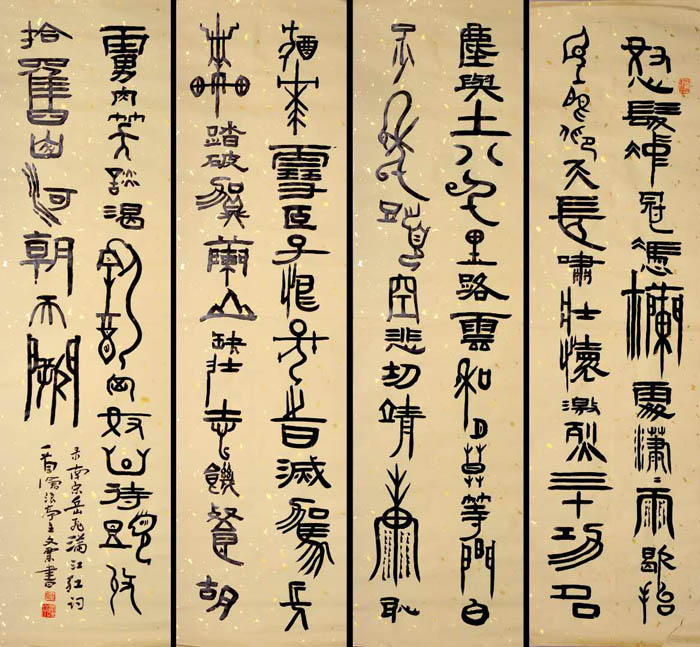 怒髮衝冠憑欄處瀟瀟雨歇抬
望眼仰天長嘯壯懷激烈三十功名
塵與土八千里路雲和月莫等閒白
了少年頭空悲切靖康恥
猶未雪臣子恨何時滅駕長
車踏破賀蘭山缺壯志飢餐胡
虜肉笑談渴飲匈奴血待從頭收
拾舊山河朝天闕
南宋岳飛滿江紅詞
亭主文業書